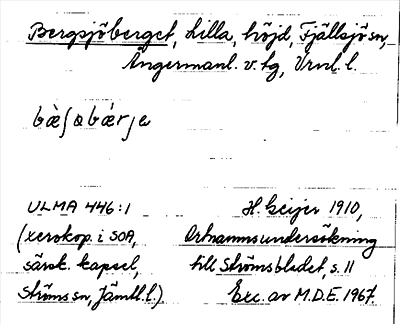 Bergsjöberget, Lilla, höjd, Fjällsjö sn,
Ångermanl. v. tg, Vrnl. l.
ULMA 446:1
(xerokop. i SOA,
särsk. kapsel,
Ströms sn, Jämtl. l.)
H. Geijer 1910,
Ortnamnsundersökning
till Strömsbladet, s. 11
Exc. av M.D.E. 1967.